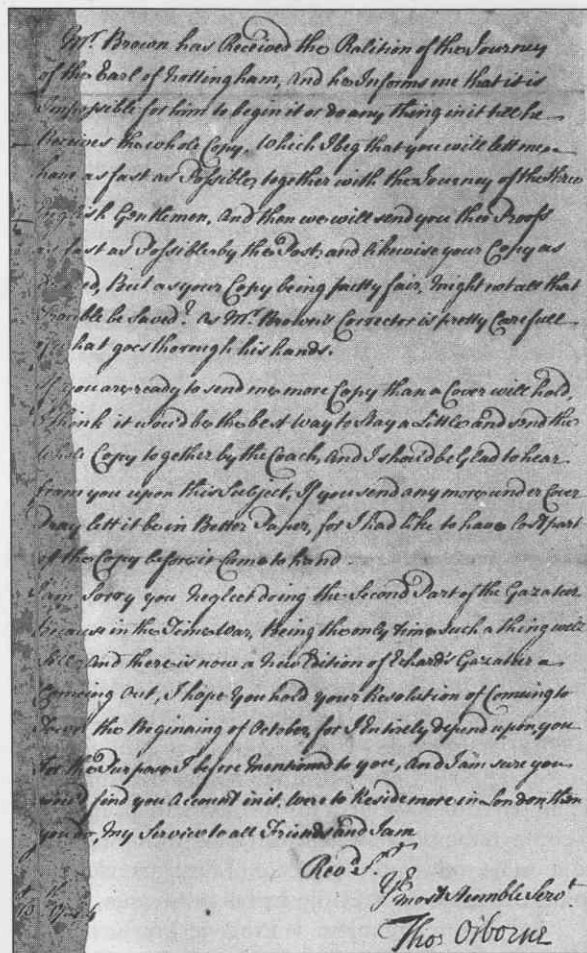 Mr. Brown has Received the Ralition of the Journey
of the Earl of Nottingham, And he Informs me that it is
Impossible for him to begin it or do any thing in it till he
Receives the whole Copy, Which I beg that you will lett me
have as fast as Possible, together with the Journey of the three
English Gentlemen, And then we will send you the Proofs
as fast as Possible by the Post, and likewise your Copy as
But as your Copy being pretty fair, might not all that
Trouble be Saved? as Mr. Brown's Corrector is pretty Carefull
of what goes thorough his hands.
If you are ready to send me more Copy than a Cover will hold,
I think it would be the best way to Stay a Little and send the
whole Copy together by the Coach, And I should be Glad to hear
from you upon this Subject, If you send any more under Cover
Pray lett it be in Better Paper, for I had like to have Lost part
of the Copy before it Come to hand
I am Sorry you Neglect doing the Second Part of the Gazateer
because in the Time War, Being the only time Such a thing will
Sell And there is now a New Edition of Echard's Gazateer a
Comeing Out, I hope You hold your Resolution of Comeing to
Town the Beginning of October, for I Entirely depend upon you
for the Purpose I before Mentioned to you, And I am sure you
would find you Account in it, were to Reside more in London then
you do, My Service to all Friends and I am
Revd. Sr.
Yr. most Humble Servt.
Thos Osborne